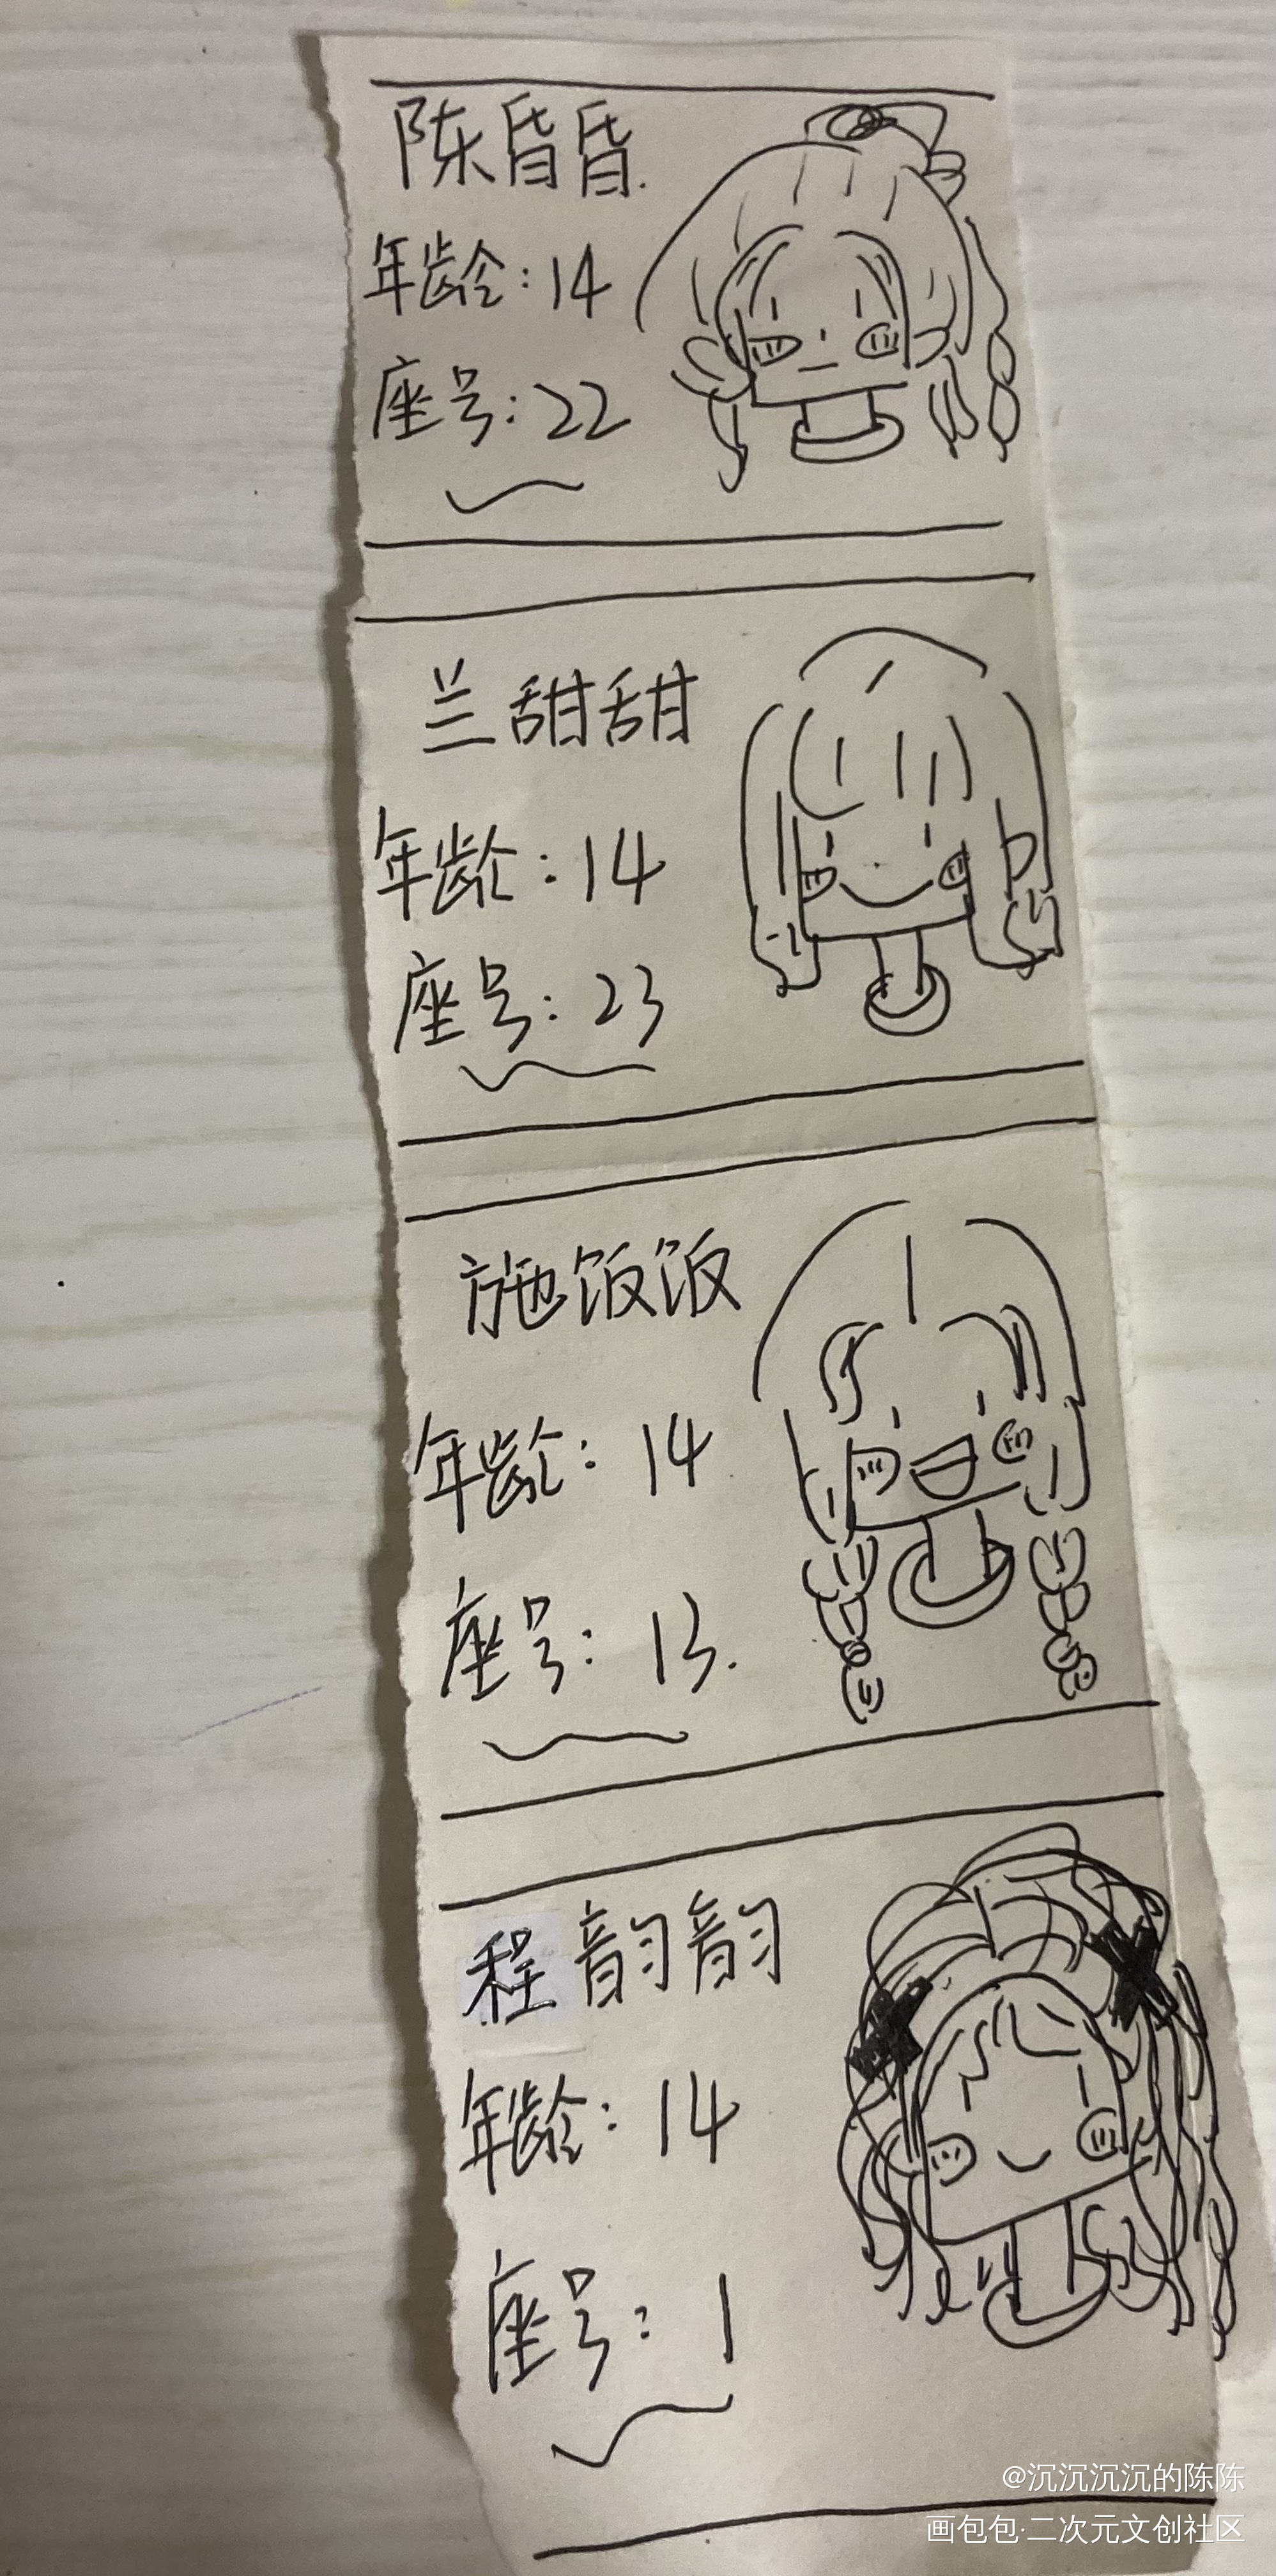 陈昏昏.
年龄:14
座号:22
兰甜甜
年龄:14
座号:23
施饭饭
年龄:14
座号:13.
程韵韵
年龄:14
座号:1
@沉沉沉沉的陈陈
画包包·二次元文创社区